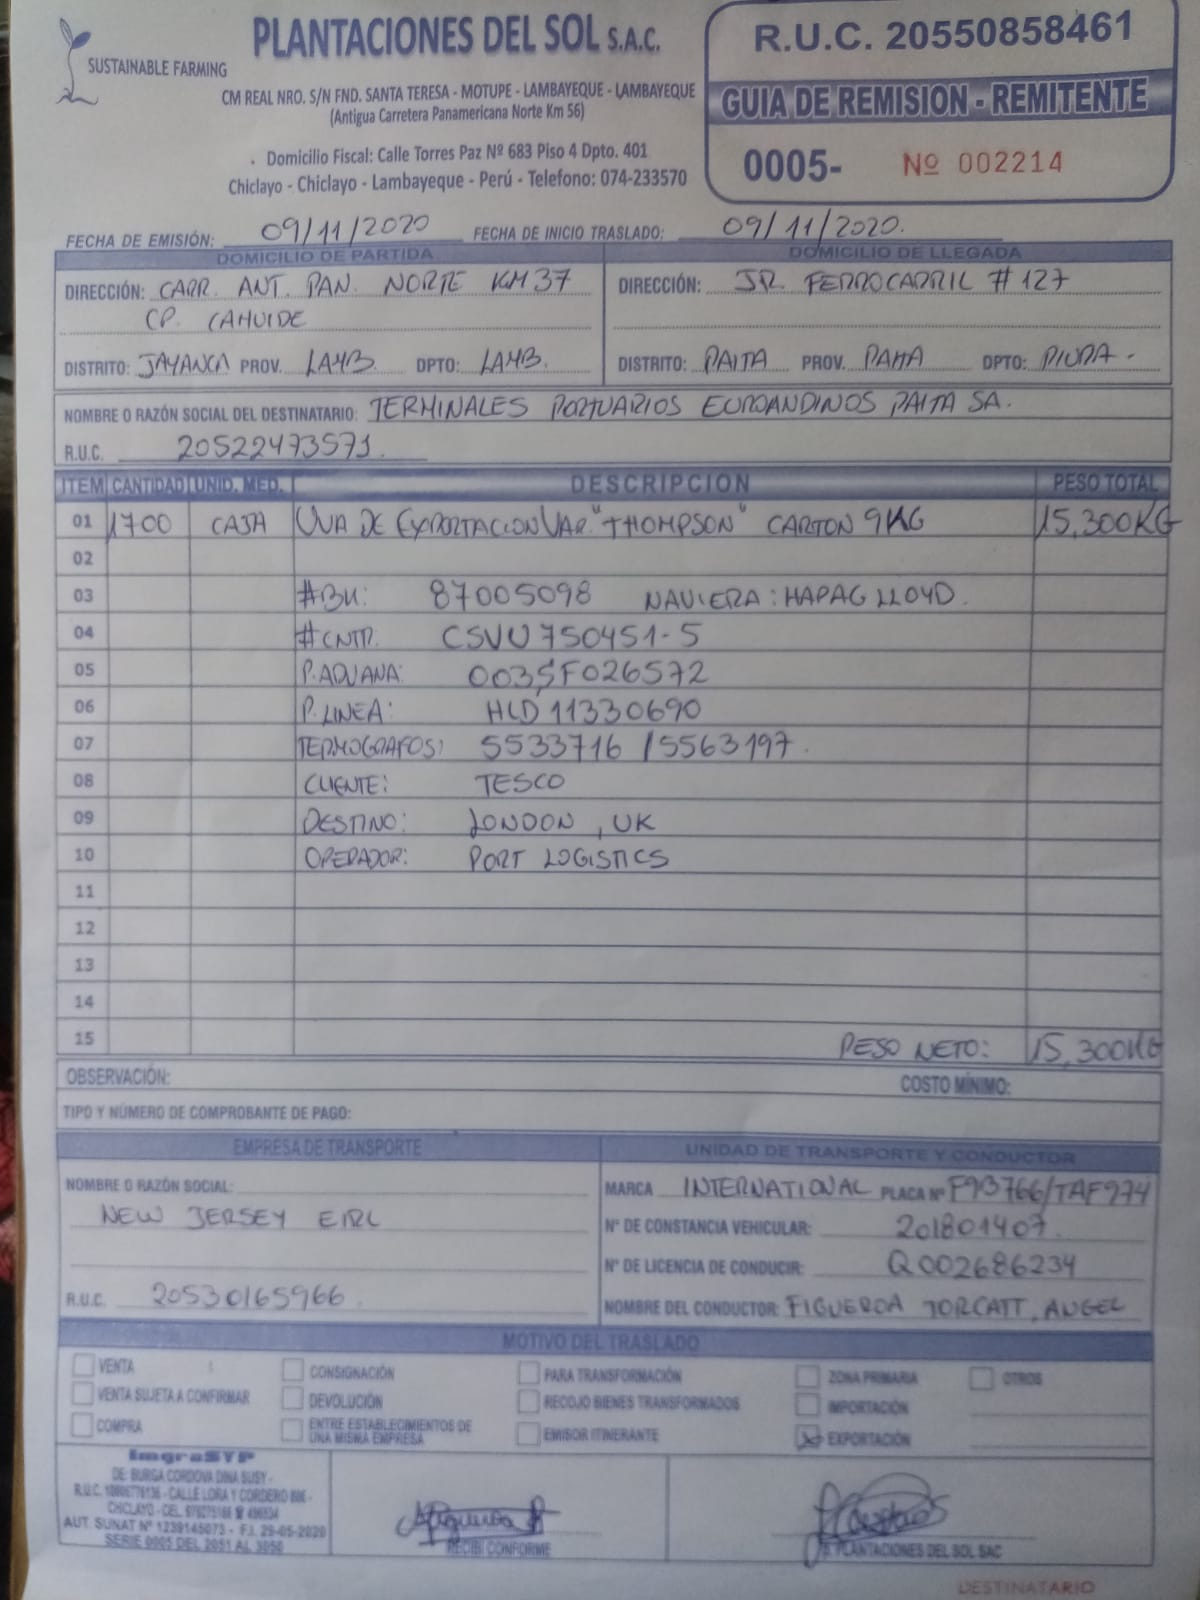 SUSTAINABLE FARMING
PLANTACIONES DEL SOL S.A.C.
CM REAL NRO. S/N FND. SANTA TERESA - MOTUPE - LAMBAYEQUE - LAMBAYEQUE
(Antigua Carretera Panamericana Norte Km 56)
Domicilio Fiscal: Calle Torres Paz Nº 683 Piso 4 Dpto. 401
Chiclayo - Chiclayo - Lambayeque - Perú - Telefono: 074-233570
R.U.C. 20550858461
GUIA DE REMISION - REMITENTE
0005- Nº 002214
FECHA DE EMISIÓN: 09/11/2020 FECHA DE INICIO TRASLADO: 09/11/2020.
DOMICILIO DE PARTIDA
DIRECCIÓN: CARR. ANT. PAN. NORTE KM 37
CP. CAHUIDE
DISTRITO: JAYANCA PROV. LAMB. DPTO: LAMB.
DOMICILIO DE LLEGADA
DIRECCIÓN: JR. FERROCARRIL # 127
DISTRITO: PAITA PROV. PAITA DPTO: PIURA.
NOMBRE O RAZÓN SOCIAL DEL DESTINATARIO: TERMINALES PORTUARIOS EUROANDINOS PAITA SA.
R.U.C. 20522473571.
ITEM CANTIDAD UNID. MED. DESCRIPCION PESO TOTAL
01 1700 CAJA UVA DE EXPORTACION VAR. "THOMPSON" CARTON 9KG 15,300KG
02
03 #BK: 87005098 NAVIERA: HAPAG LLOYD.
04 #CNTR. CSVU 750451-5
05 P. ADUANA: 003SF026572
06 P. LINEA: HLD 11330690
07 TERMOGRAFOS: 5533716 / 5563197.
08 CLIENTE: TESCO
09 DESTINO: LONDON, UK
10 OPERADOR: PORT LOGISTICS
11
12
13
14
15 PESO NETO: 15,300KG
OBSERVACIÓN: COSTO MÍNIMO:
TIPO Y NÚMERO DE COMPROBANTE DE PAGO:
EMPRESA DE TRANSPORTE
NOMBRE O RAZÓN SOCIAL:
NEW JERSEY EIRL
R.U.C. 20530165966
UNIDAD DE TRANSPORTE Y CONDUCTOR
MARCA INTERNATIONAL PLACA Nº F9J766/TAF974
Nº DE CONSTANCIA VEHICULAR: 201801407.
Nº DE LICENCIA DE CONDUCIR: Q002686234
NOMBRE DEL CONDUCTOR: FIGUEROA TORCATT, ANGEL
MOTIVO DEL TRASLADO
VENTA CONSIGNACIÓN PARA TRANSFORMACIÓN ZONA PRIMARIA OTROS
VENTA SUJETA A CONFIRMAR DEVOLUCIÓN RECOJO BIENES TRANSFORMADOS IMPORTACIÓN
COMPRA ENTRE ESTABLECIMIENTOS DE UNA MISMA EMPRESA EMISOR ITINERANTE EXPORTACIÓN
ImgraSYP
DE: BURGA CORDOVA DINA SUSY -
CALLE LORA Y CORDERO
CHICLAYO - CEL.
AUT. SUNAT Nº 1239145073 - F.I. 29-05-2020
SERIE 0005 DEL 2051 AL 3050
RECIBI CONFORME
P. PLANTACIONES DEL SOL SAC
DESTINATARIO